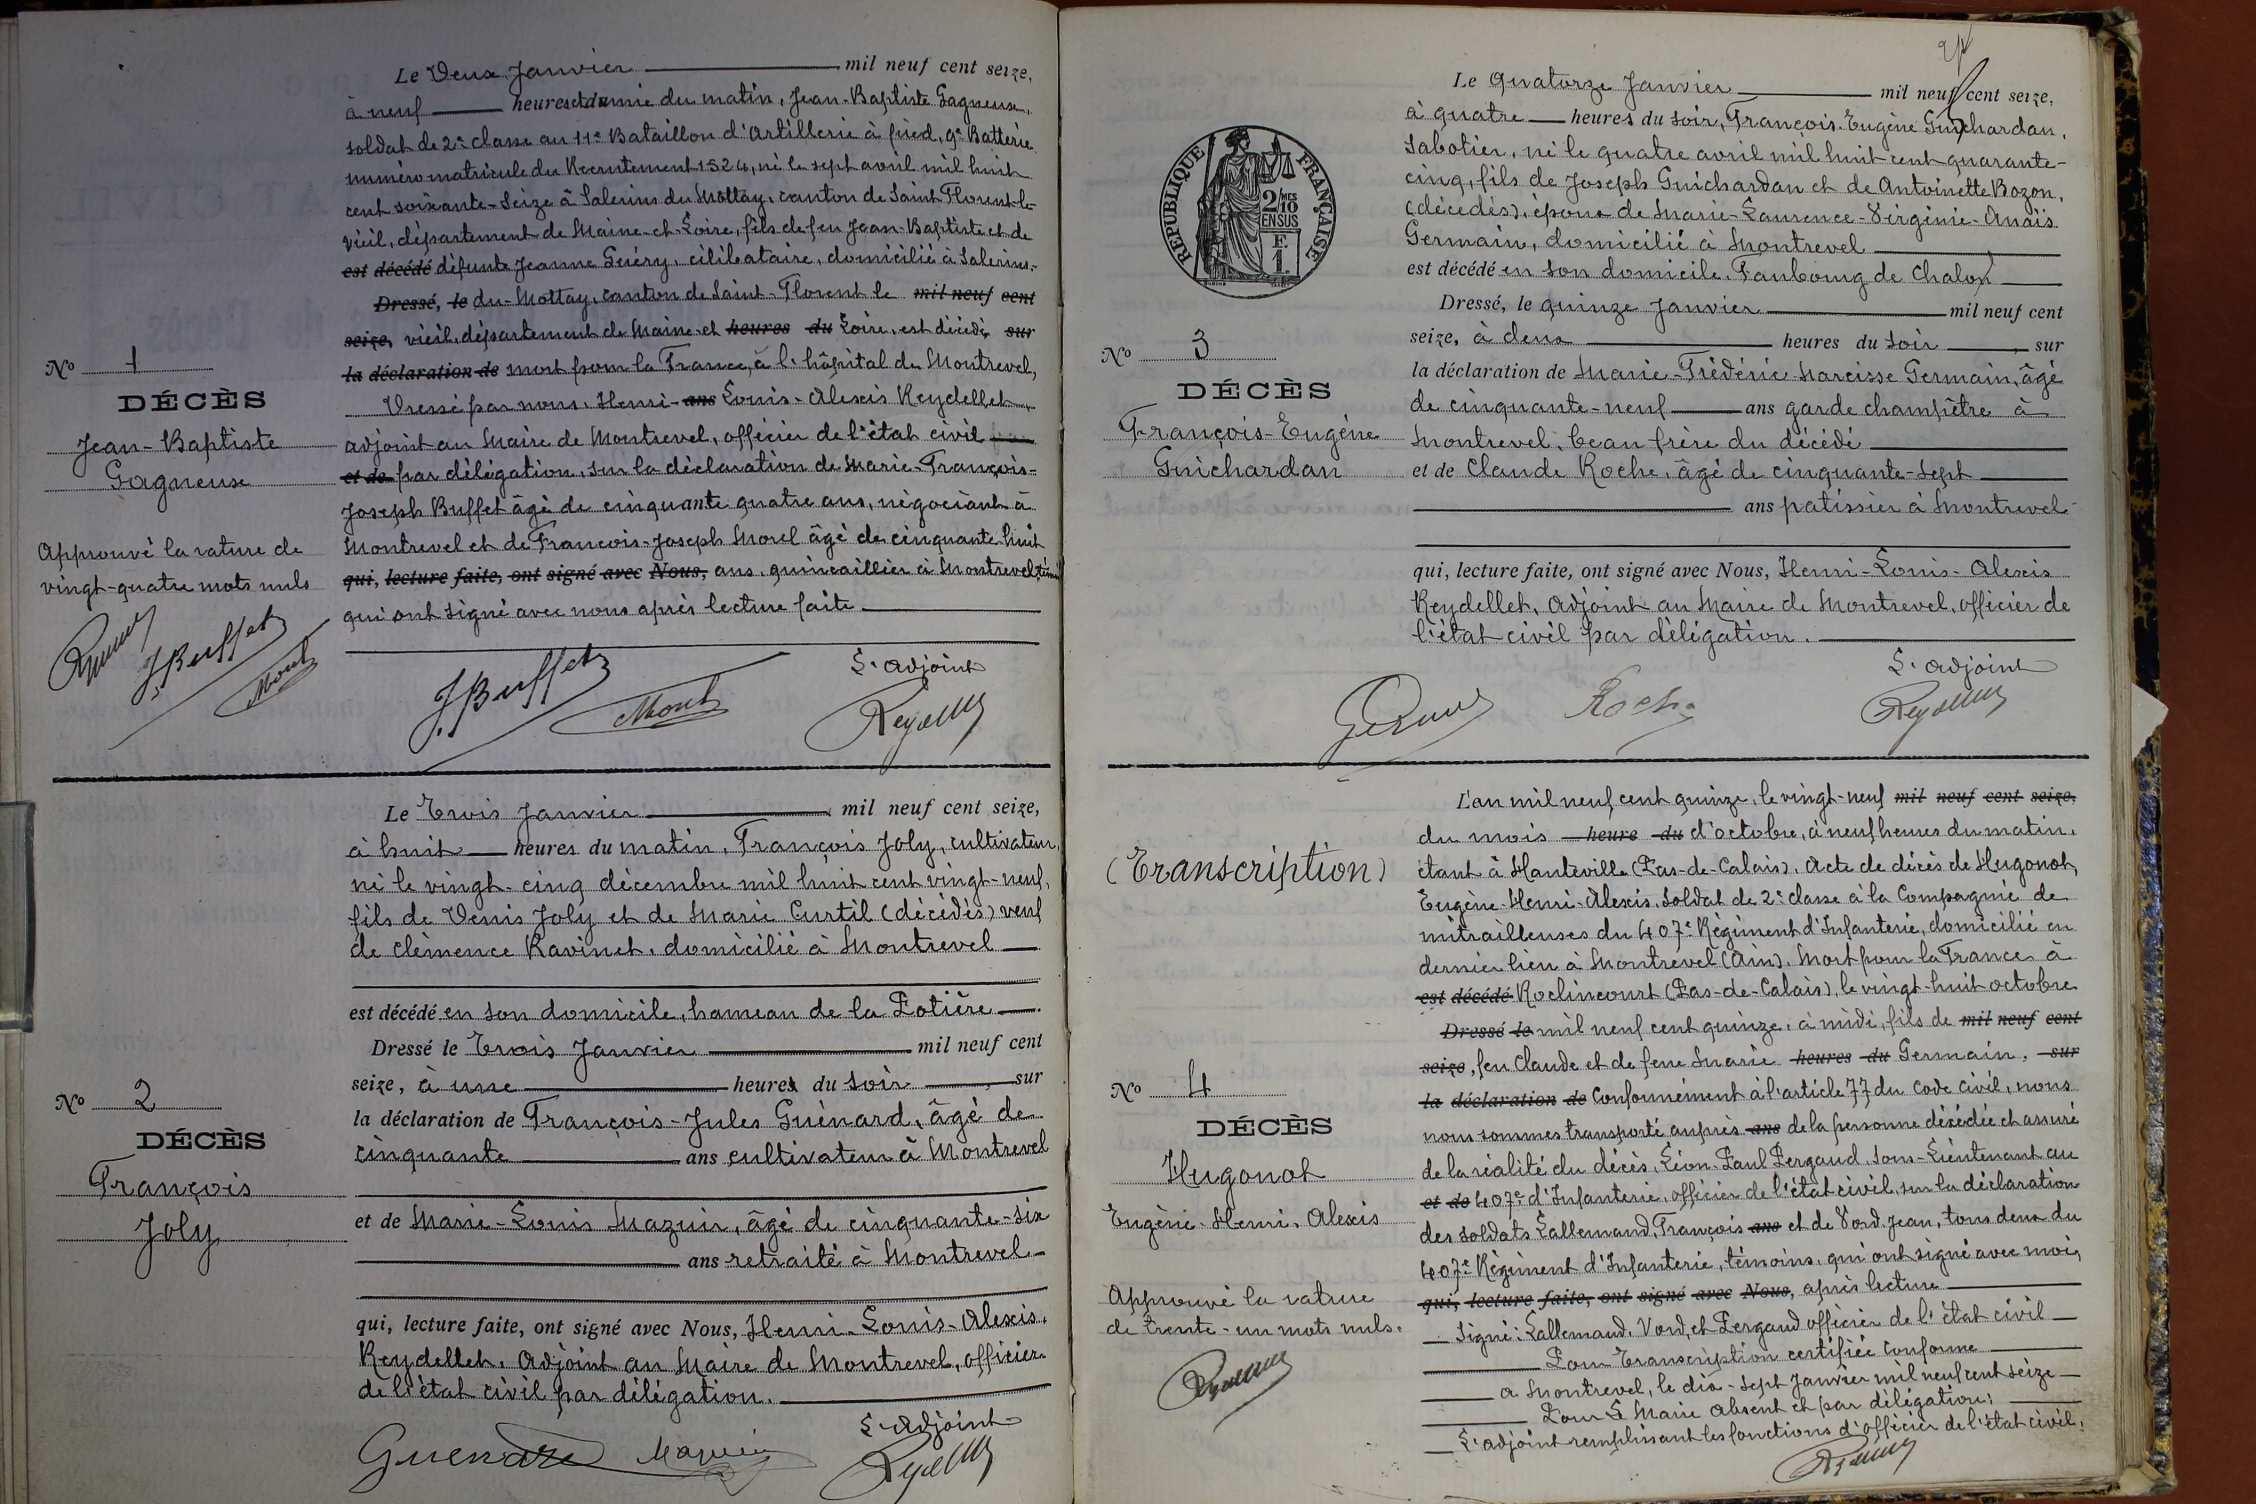 Le Deux Janvier mil neuf cent seize,
à neuf heures et demie du matin, Jean-Baptiste Gagneux,
soldat de 2e classe au 11e Bataillon d'Artillerie à pied, 9e Batterie
numéro matricule du Recrutement 1524, né le sept avril mil huit
cent soixante-seize à Salerins du Mottay, canton de Saint-Florent-le-
vieil, département de Maine-et-Loire, fils de feu Jean-Baptiste et de
est décédé défunte Jeanne Guéry, célibataire, domicilié à Salerins-
Dressé, le du-Mottay, canton de Saint-Florent le mil neuf cent
seize, vieil, département de Maine-et heures du Loire, est décédé sur
la déclaration de mort pour la France, à l'hôpital de Montrevel,
Dressé par nous, Henri- ans Louis-Alexis Reydellet,
adjoint au Maire de Montrevel, officier de l'état civil
et de par délégation, sur la déclaration de Marie-François-
Joseph Buffet âgé de cinquante quatre ans, négociant à
Montrevel et de François-Joseph Morel âgé de cinquante huit
qui, lecture faite, ont signé avec Nous, ans, quincaillier à Montrevel,
qui ont signé avec nous après lecture faite
No 1
DÉCÈS
Jean-Baptiste
Gagneux
Approuvé la rature de
vingt-quatre mots nuls
J. Buffet
L'adjoint
J. Buffet
Le Trois Janvier mil neuf cent seize,
à huit heures du matin, François Joly, cultivateur,
né le vingt-cinq décembre mil huit cent vingt-neuf,
fils de Denis Joly et de Marie Curtil (décédés) veuf
de Clémence Ravinet, domicilié à Montrevel
est décédé en son domicile, hameau de la Potière
Dressé le Trois Janvier mil neuf cent
seize, à une heures du soir, sur
la déclaration de François-Jules Guénard, âgé de
cinquante ans cultivateur à Montrevel
et de Marie-Louis Mazuir, âgé de cinquante-six
ans retraité à Montrevel
qui, lecture faite, ont signé avec Nous, Henri-Louis-Alexis,
Reydellet, Adjoint au Maire de Montrevel, officier
de l'état civil par délégation.
No 2
DÉCÈS
François
Joly
L'adjoint
Guenard
RÉPUBLIQUE FRANÇAISE
2/10 MES
EN SUS
F.
1.
Le Quatorze Janvier mil neuf cent seize,
à quatre heures du soir, François-Eugène Guichardan,
sabotier, né le quatre avril mil huit cent quarante-
cinq, fils de Joseph Guichardan et de Antoinette Bozon,
(décédés), époux de Marie-Laurence-Virginie-Anaïs
Germain, domicilié à Montrevel
est décédé en son domicile, Faubourg de Chalon
Dressé, le quinze Janvier mil neuf cent
seize, à deux heures du soir, sur
la déclaration de Marie-Frédéric-Narcisse Germain, âgé
de cinquante-neuf ans garde champêtre à
Montrevel, beau frère du décédé
et de Claude Roche, âgé de cinquante-sept
ans patissier à Montrevel-
qui, lecture faite, ont signé avec Nous, Henri-Louis-Alexis
Reydellet, Adjoint au Maire de Montrevel, officier de
l'état civil par délégation.
No 3
DÉCÈS
François-Eugène
Guichardan
L'adjoint
Roche
L'an mil neuf cent quinze, le vingt-neuf mil neuf cent seize,
du mois heure du d'octobre, à neuf heures du matin,
étant à Hauteville (Pas-de-Calais). Acte de décès de Hugonot,
Eugène-Henri-Alexis, Soldat de 2e classe à la Compagnie de
mitrailleuses du 407e Régiment d'Infanterie, domicilié en
dernier lieu à Montrevel (Ain). Mort pour la France à
est décédé Roclincourt (Pas-de-Calais), le vingt-huit octobre
Dressé le mil neuf cent quinze, à midi, fils de mil neuf cent
seize, feu Claude et de feue Marie heures du Germain, sur
la déclaration de Conformément à l'article 77 du Code civil, nous
nous sommes transporté auprès ans de la personne décédée et assuré
de la réalité du décès, Léon-Paul Pergaud, Sous-Lieutenant au
et de 407e d'Infanterie, officier de l'état civil, sur la déclaration
des soldats Lallemand, François ans et de Vord, Jean, tous deux du
407e Régiment d'Infanterie, témoins, qui ont signé avec moi,
qui, lecture faite, ont signé avec Nous, après lecture
Signé: Lallemand, Vord, et Pergaud officier de l'état civil
Pour Transcription certifiée conforme
a Montrevel, le dix-sept Janvier mil neuf cent seize
Pour Le Maire absent et par délégation;
L'adjoint remplissant les fonctions d'officier de l'état civil,
(Transcription)
No 4
DÉCÈS
Hugonot
Eugène-Henri, Alexis
Approuvé la rature
de trente-un mots nuls.